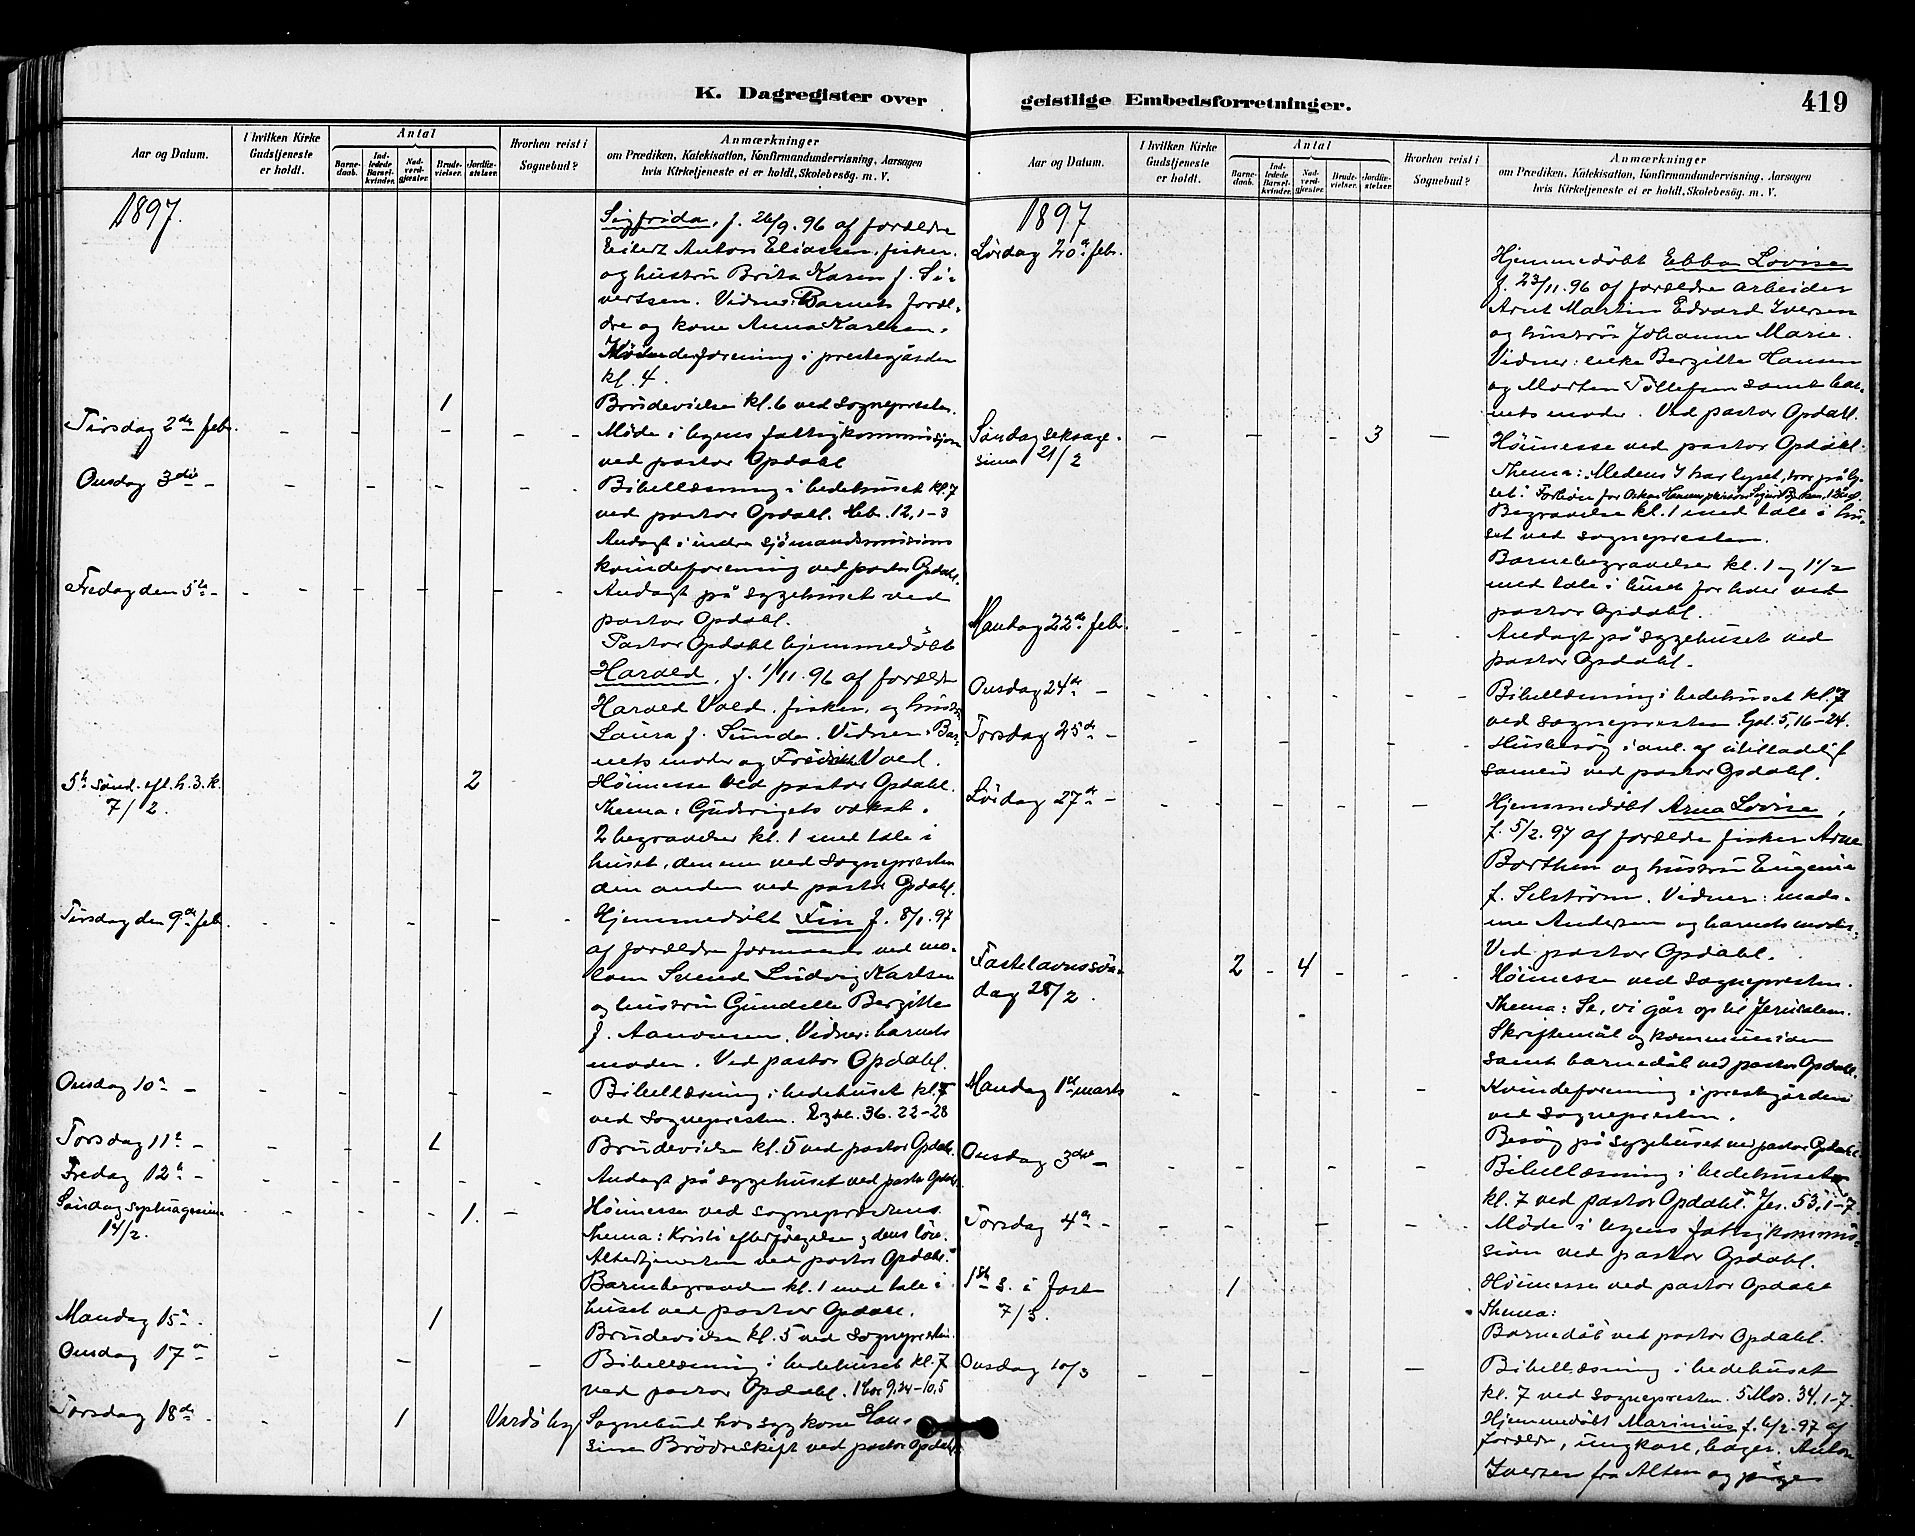 K. Dagregister over geistlige Embedsforretninger.
419
Aar og Datum.
I hvilken Kirke Gudstjeneste er holdt.
Antal
Barnedaab.
Indledede Barselkvinder.
Nadverdgjester.
Brudevielser.
Jordfæstelser.
Hvorhen reist i Sognebud?
Anmærkninger
om Prædiken, Katekisation, Konfirmandundervisning, Aarsagen
hvis Kirketjeneste ei er holdt, Skolebesøg. m. V.
1897.
Sigfrida, f. 26/9. 96 af forældre
Eilert Anton Eliassen, fisker.
og hustru Brita Karen f. Si-
vertsen. Vidner: Barnets foræl-
dre og kone Anna Karlsen.
Kvindeforening i prestegården
kl. 4.
1 Brudevielse kl. 6 ved sognepresten.
Tirsdag 2den febr. Møde i byens fattigkommission
ved pastor Opdahl
Onsdag 3die - Bibellæsning i bedehuset kl. 7
ved pastor Opdahl. Heb. 12, 1-3
Andagt i indre sjømandsmissions
kvindeforening ved pastor Opdahl.
Fredag den 5te - Andagt på sygehuset ved
pastor Opdahl.
Pastor Opdahl hjemmedøbt
Harald, f. 1/11. 96 af forældre
Harald Vold, fisker, og hustru
Laura f. Sunde. Vidner: Bar-
nets moder og Fredrik Vold.
5te sønd. eft. h. 3. k. 2 Høimesse ved pastor Opdahl.
7/2. Thema: Gudsrigets vækst.
2 begravelser kl. 1 med tale i
huset, den ene ved sognepresten
den anden ved pastor Opdahl.
Tirsdag den 9de feb. Hjemmedøbt Fin f. 8/1. 97
af forældre formand ved mo-
loen Svend Ludvig Karlsen
og hustru Gundelle Bergitte
f. Aanonsen. Vidner: barnets
moder. Ved pastor Opdahl.
Onsdag 10de - Bibellæsning i bedehuset kl. 7
ved sognepresten. Ezekl. 36. 22-28
Torsdag 11te - 1 Brudevielse kl. 5 ved pastor Opdahl.
Fredag 12te - Andagt på sygehuset ved pastor Opdahl
Søndag septuagesima 1. Høimesse ved sognepresten.
14/2. Thema: Kristi efterfølgelse og dens løn.
Altertjenesten ved pastor Opdahl.
Barnebegravelse kl. 1 med tale i
huset ved pastor Opdahl.
Mandag 15de. 1 Brudevielse kl. 5 ved sognepresten.
Onsdag 17de Bibellæsning i bedehuset kl. 7
ved pastor Opdahl. 1 Cor 9.24-10.5
Torsdag 18de 1 Vardø by Sognebud hos syg kone Han-
sine Brodreskift ved pastor Opdahl
1897
Lørdag 20de febr. Hjemmedøbt Ebba Lovise
f. 23/11. 96 af forældre arbeider
Arnt Martin Edvard Iversen
og hustru Johanne Marie.
Vidner: enke Bergitte Hansen
og Morten Tollefsen samt bar-
nets moder. Ved pastor Opdahl.
Søndag seksage- 3 Høimesse ved pastor Opdahl.
sima 21/2 Thema: Medens I har lyset, tror på ly-
set.
Begravelse kl. 1 med tale i hu-
set ved sognepresten.
Barnebegravelser kl. 1 og 1 1/2
med tale i huset for hver ved
pastor Opdahl.
Mandag 22de febr. Andagt på sygehuset ved
pastor Opdahl.
Onsdag 24de - Bibellæsning i bedehuset kl. 7
ved sognepresten. Gal. 5, 16-24.
Torsdag 25de - Husbesøg i anl. af utilladeligt
samliv ved pastor Opdahl.
Lørdag 27de - Hjemmedøbt Arna Lovise,
f. 5/2. 97 af forældre fisker Arne
Borthen og hustru Eugenie
f. Selström. Vidner: mada-
me Andersen og barnets moder.
Ved pastor Opdahl.
Fastelavnssøn- 2 - 4 Høimesse ved sognepresten.
dag 28/2. Thema: Se, vi går op til Jerusalem.
Skriftemål og kommunion
samt barnedåb ved pastor Opdahl.
Mandag 1ste marts Kvindeforening i prestegården
ved sognepresten.
Besøg på sygehuset ved pastor Opdahl.
Onsdag 3die - Bibellæsning i bedehuset
kl. 7 ved pastor Opdahl. Jes. 53, 1-7
Torsdag 4de - Møde i byens fattigkommis-
sion ved pastor Opdahl.
1ste s. i faste 1 Høimesse ved pastor Opdahl
7/3. Thema:
Barnedåb ved pastor Opdahl.
Onsdag 10/3 Bibellæsning i bedehuset
kl. 7 ved sognepresten. 5 Mos. 34, 1-7.
Hjemmedøbt Marinius f. 6/2. 97 af
forældre, ungkarl, bager. Anton
Iversen fra Alten og pige